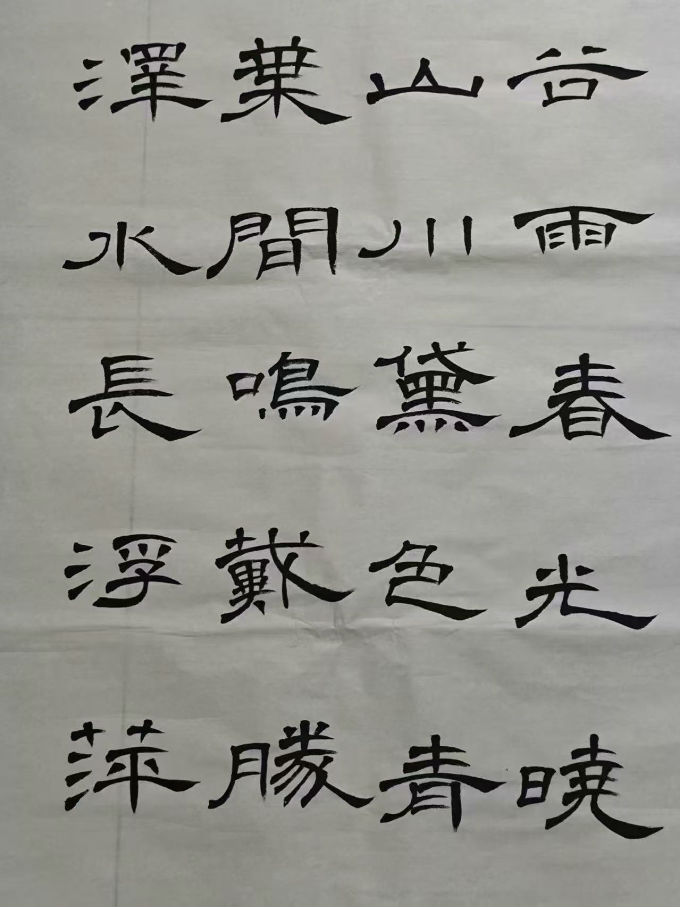 谷雨春光曉
山川黛色青
葉間鳴戴勝
澤水長浮萍